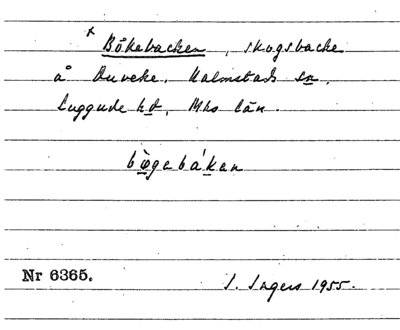 x
Bökebacken, skogsbacke
å Duveke, Halmstads sn,
Luggude hd, Mhs län.
bø̀gebákan
Nr 6365.
I. Ingers 1955.